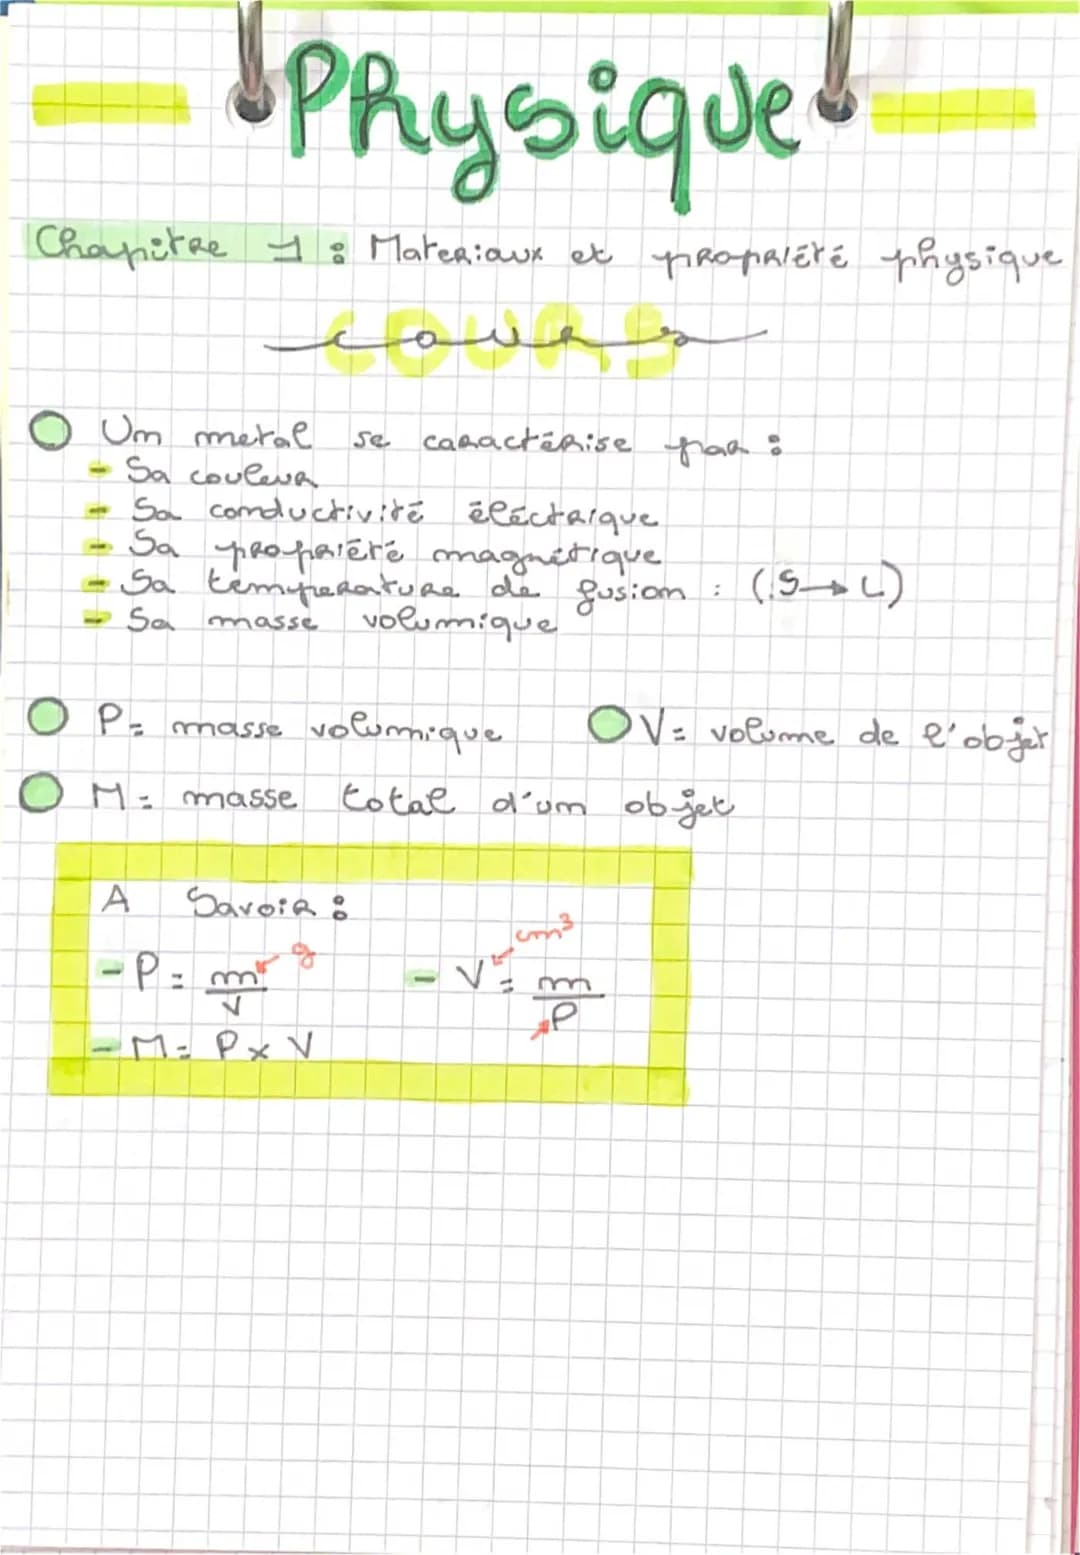 Physique
Chapitre 1 : Materiaux et propriété physique
COURS
cours
Um metal se caractérise par :
- Sa couleur
- Sa conductivité éléctrique
- Sa propriété magnétique
- Sa temperature de fusion : (S → L)
- Sa masse volumique
P = masse volumique V = volume de l'objet
M = masse total d'um objet
A Savoir :
- P = m/V g - V = m/P cm³
- M = P x V